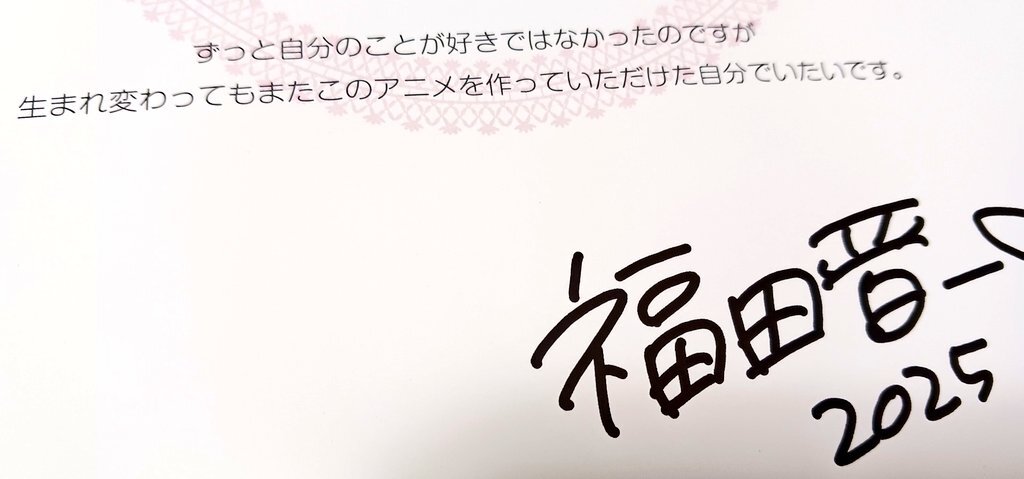 ずっと自分のことが好きではなかったのですが
生まれ変わってもまたこのアニメを作っていただけた自分でいたいです。
福田晋一
2025